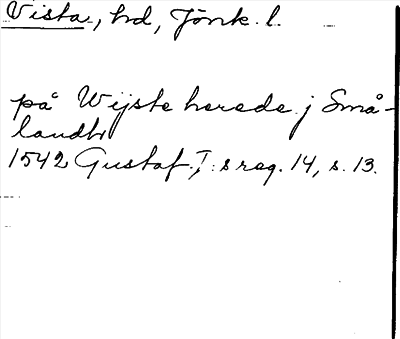 Vista, hd, Jönk. l.
på Wijste herede j Små-
landh
1542 Gustaf I:s reg. 14, s. 13.